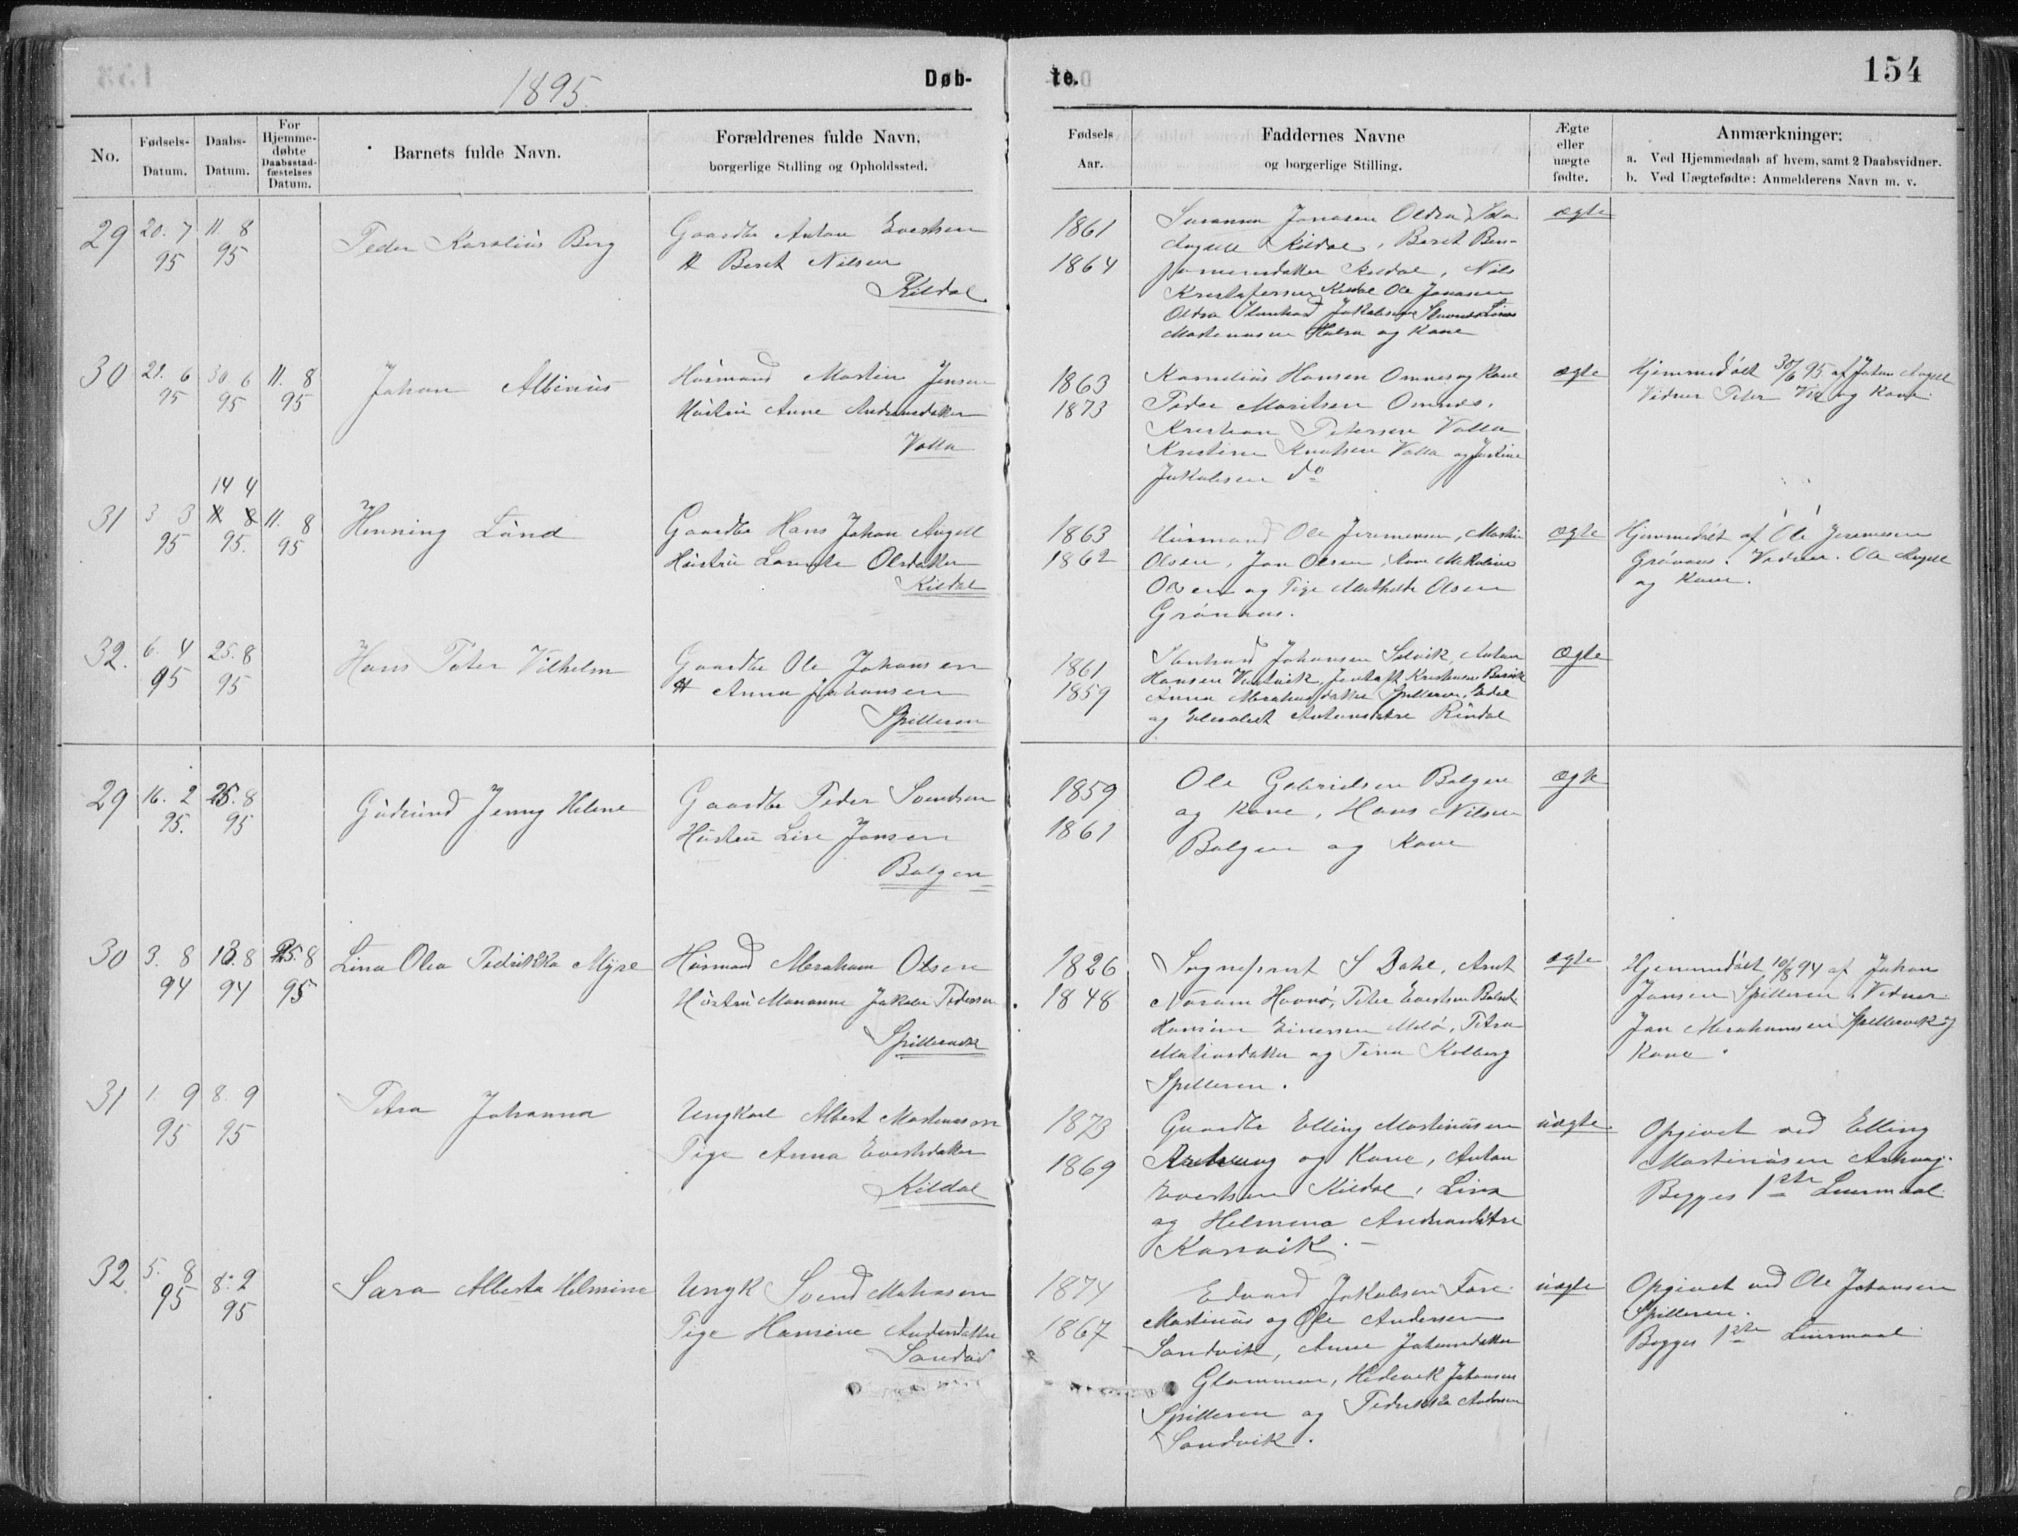 1895.
Døb-
te.
154
No.
Fødsels-
Datum.
Daabs-
Datum.
For
Hjemme-
døbte
Daabsstad-
fæstelses
Datum.
Barnets fulde Navn.
Forældrenes fulde Navn,
borgerlige Stilling og Opholdssted.
Fødsels
Aar.
Faddernes Navne
og borgerlige Stilling.
Ægte
eller
uægte
fødte.
Anmærkninger:
a. Ved Hjemmedaab af hvem, samt 2 Daabsvidner.
b. Ved Uægtefødte: Anmelderens Navn m. v.
29
20. 7
95
11 8
95
Peder Karolius Berg
Gaardbr Anton Evertsen
H Beret Nilsen
Kildal
1861
1864
Susanna Jonasen Oldra
Angell Kildal, Beret Ben-
jaminsdatter Kildal, Nils
Kristofersen Kildal Ole Jonasen
Oldra Jakobsen
Martinusen Halsa og Kone
ægte
30
21. 6
95
30 6
95
11. 8
95
Johan Albinus
Husmand Martin Jensen
Hustru Anne Andreasdatter
Valla
1863
1873
Kornelius Hansen Omnes og Kone
Peder Moritsen Omnes,
Kristian Petersen Valla
Kristine Knutsen Valla og Justine
Jakobsen do
ægte
Hjemmedøbt 30/6 95 af Johan Angell
Vidner Peter og Kone.
31
3 3
95
14 4
11 8
95.
11. 8
95
Henning Lund
Gaardbr Hans Johan Angell
Hustru Lorentse Olsdatter
Kildal
1863
1862
Husmand Ole Jeremiasen, Martin
Olsen, Jon Olsen, Kone Nikoline
Olsen og Pige Mathilde Olsen
Grønnaas.
ægte
Hjemmedøbt af Ole Jeremiasen
Grønaas. Vidner. Ole Angell
og Kone.
32.
6. 4
95
25. 8
95
Hans Peter Vilhelm
Gaardbr Ole Johansen
H Anna Johansen
Spilleren
1861
1859
Johansen Selvik, Anton
Hansen Kristensen
Anna Abrahamsdatter Spilleren, Edel
og Elisabet Antonsdatre Rindal
ægte
29
16. 2
95.
25. 8
95
Gudrund Jenny Helene
Gaardbr Peder Svendsen
Hustru Lise Jonsen
Bolgen
1859
1861
Ole Gabrielsen Bolgen
og Kone, Hans Nilsen
Bolgen og Kone
ægte
30
3. 8
94
13. 8
94
25. 8
95
Lina Olea Fedrikka Myre
Husmand Abraham Olsen
Hustru Marianne Jakobe Pedersen
Spillervik
1826
1848
Sogneprest S Dahl, Arnt
Hovnø, Peter Evertsen
Hansine Einersen Melø, Petra
Matiasdatter og Tina Kolberg
Spilleren.
ægte
Hjemmedøbt 10/8 94 af Johan
Jansen Spilleren. Vidner.
Jan Abrahamsen Spillervik og
Kone.
31
1. 9
95
8. 9
95
Petra Johanna
Ungkarl Albert Martinussen
Pige Anna Evertsdatter
Kildal
1873
1869
Gaardbr Elling Martinusen
Arhaug og Kone, Anton
Evertsen Kildal, Lina
og Helmina Andreasdatre
Karsvik.
uægte
Opgivet ved Elling
Martinusen Arhaug.
Begges 1ste Leiermaal.
32
5. 8
95
8. 9
95
Sara Alberta Helmine
Ungk Svend Mathisen
Pige Hansine Andersdatter
Sandvik
1874
1867
Edvard Jakobsen Fore
Martinus og Ole Andersen
Sandvik, Anne Johansdatter
Glammen, Hedevik Johansen
Spilleren og Fedrikka Andersen
Sandvik.
uægte
Opgivet ved Ole Johansen
Spilleren.
Begges 1ste Leiermaal.